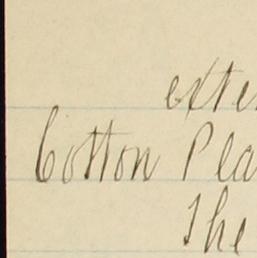 exte
Cotton Pla
The